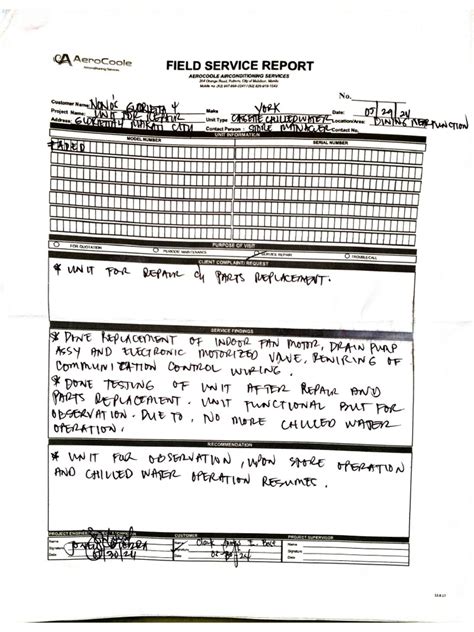 AeroCoole
Airconditioning Services
FIELD SERVICE REPORT
AEROCOOLE AIRCONDITIONING SERVICES
No.
Customer Name: NONO'S GLORIETTA 4 Make YORK Date: 05/29/24
Project Name: UNIT FOR REPAIR Unit Type CASETTE CHILLED WATER Location/Area: DINING NEAR FUNCTION
Address: GLORIETTA 4 MAKATI CITY Contact Person STORE MANAGER Contact No.
UNIT INFORMATION
MODEL NUMBER SERIAL NUMBER
FADED
PURPOSE OF VISIT
FOR QUOTATION PERIODIC MAINTENANCE SERVICE REPAIR TROUBLE CALL
CLIENT COMPLAINT/ REQUEST
* UNIT FOR REPAIR PARTS REPLACEMENT.
SERVICE FINDINGS
* DONE REPLACEMENT OF INDOOR FAN MOTOR, DRAIN PUMP
ASSY AND ELECTRONIC MOTORIZED VALVE, REWIRING OF
COMMUNICATION CONTROL WIRING.
* DONE TESTING OF UNIT AFTER REPAIR AND
PARTS REPLACEMENT. UNIT FUNCTIONAL BUT FOR
OBSERVATION. DUE TO, NO MORE CHILLED WATER
OPERATION.
RECOMMENDATION
* UNIT FOR OBSERVATION, UPON STORE OPERATION
AND CHILLED WATER OPERATION RESUMES.
CUSTOMER PROJECT SUPERVISOR
Name Name Name
Signature Signature Signature
Date Date Date